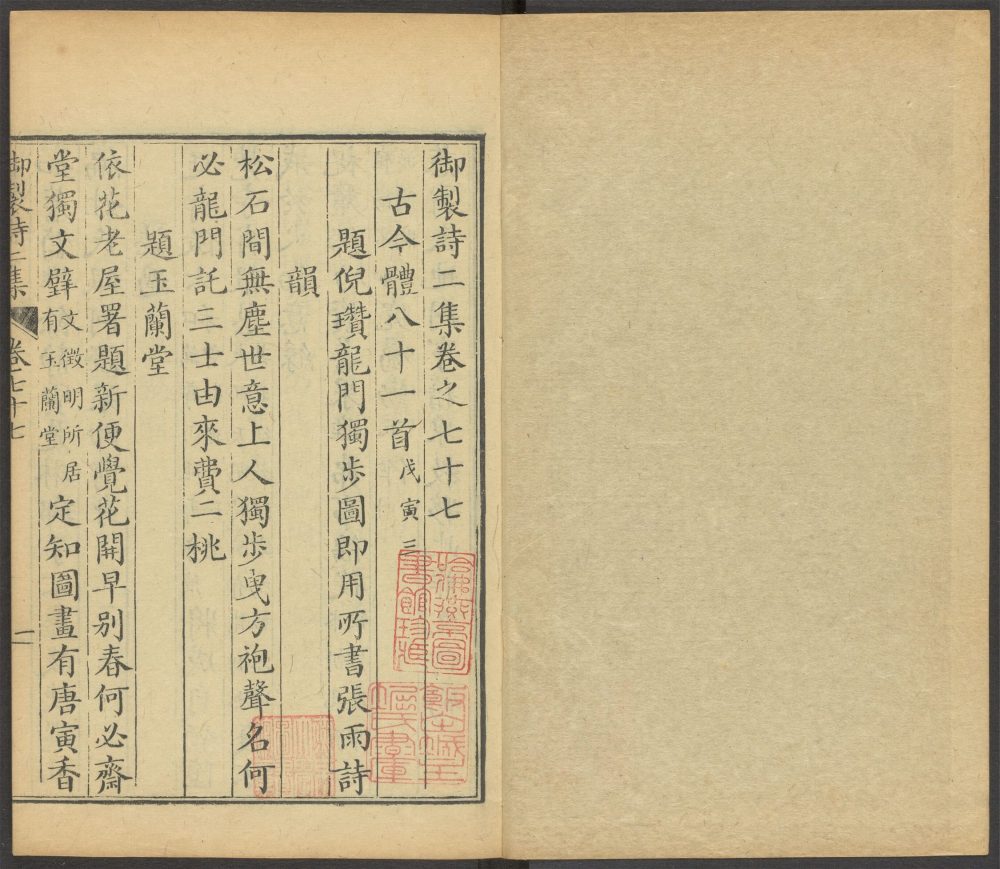 御製詩二集卷之七十七
古今體八十一首戊寅三
題倪瓚龍門獨步圖即用所書張雨詩
韻
松石間無塵世意上人獨步曳方袍聲名何
必龍門託三士由來費二桃
題玉蘭堂
依花老屋署題新便覺花開早別春何必齋
堂獨文璧文徵明所居有玉蘭堂定知圖畫有唐寅香
御製詩二集 卷七十七 一
哈佛燕京圖書館珍藏